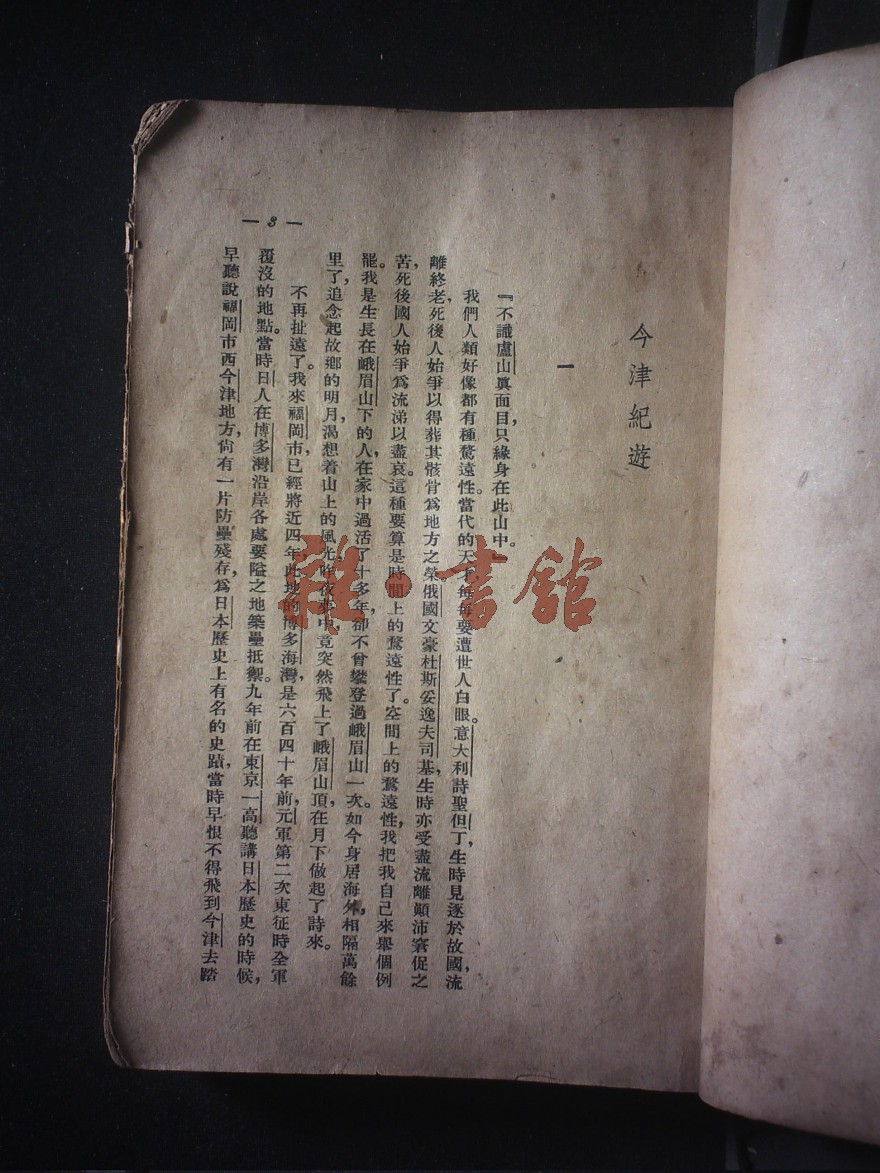 今津紀遊
一
『不識盧山眞面目只緣身在此山中。
我們人類好像都有種騖遠性。當代的天才每每要遭世人白眼。意大利詩聖但丁，生時見逐於故國，流
離終老，死後人始爭以得葬其骸骨爲地方之榮。俄國文豪杜斯妥逸夫司基，生時亦受盡流離顚沛窘促之
苦，死後國人始爭爲流涕以盡哀。這種要算是時間上的騖遠性了。空間上的騖遠性，我把我自己來舉個例
罷。我是生長在峨眉山下的人，在家中過活了十多年，卻不曾攀登過峨眉山一次。如今身居海外，相隔萬餘
里了，追念起故鄉的明月，渴想着山上的風光，昨夜夢中，竟突然飛上了峨眉山頂，在月下做起了詩來。
不再扯遠了。我來福岡市已經將近四年，此地的博多海灣，是六百四十年前，元軍第二次東征時全軍
覆沒的地點。當時日人在博多灣沿岸各處要隘之地築壘抵禦。九年前在東京一高聽講日本歷史的時候，
早聽說福岡市西今津地方，尙有一片防壘殘存，爲日本歷史上有名的史蹟，當時早恨不得飛到今津去踏
— 3 —
雜·書館